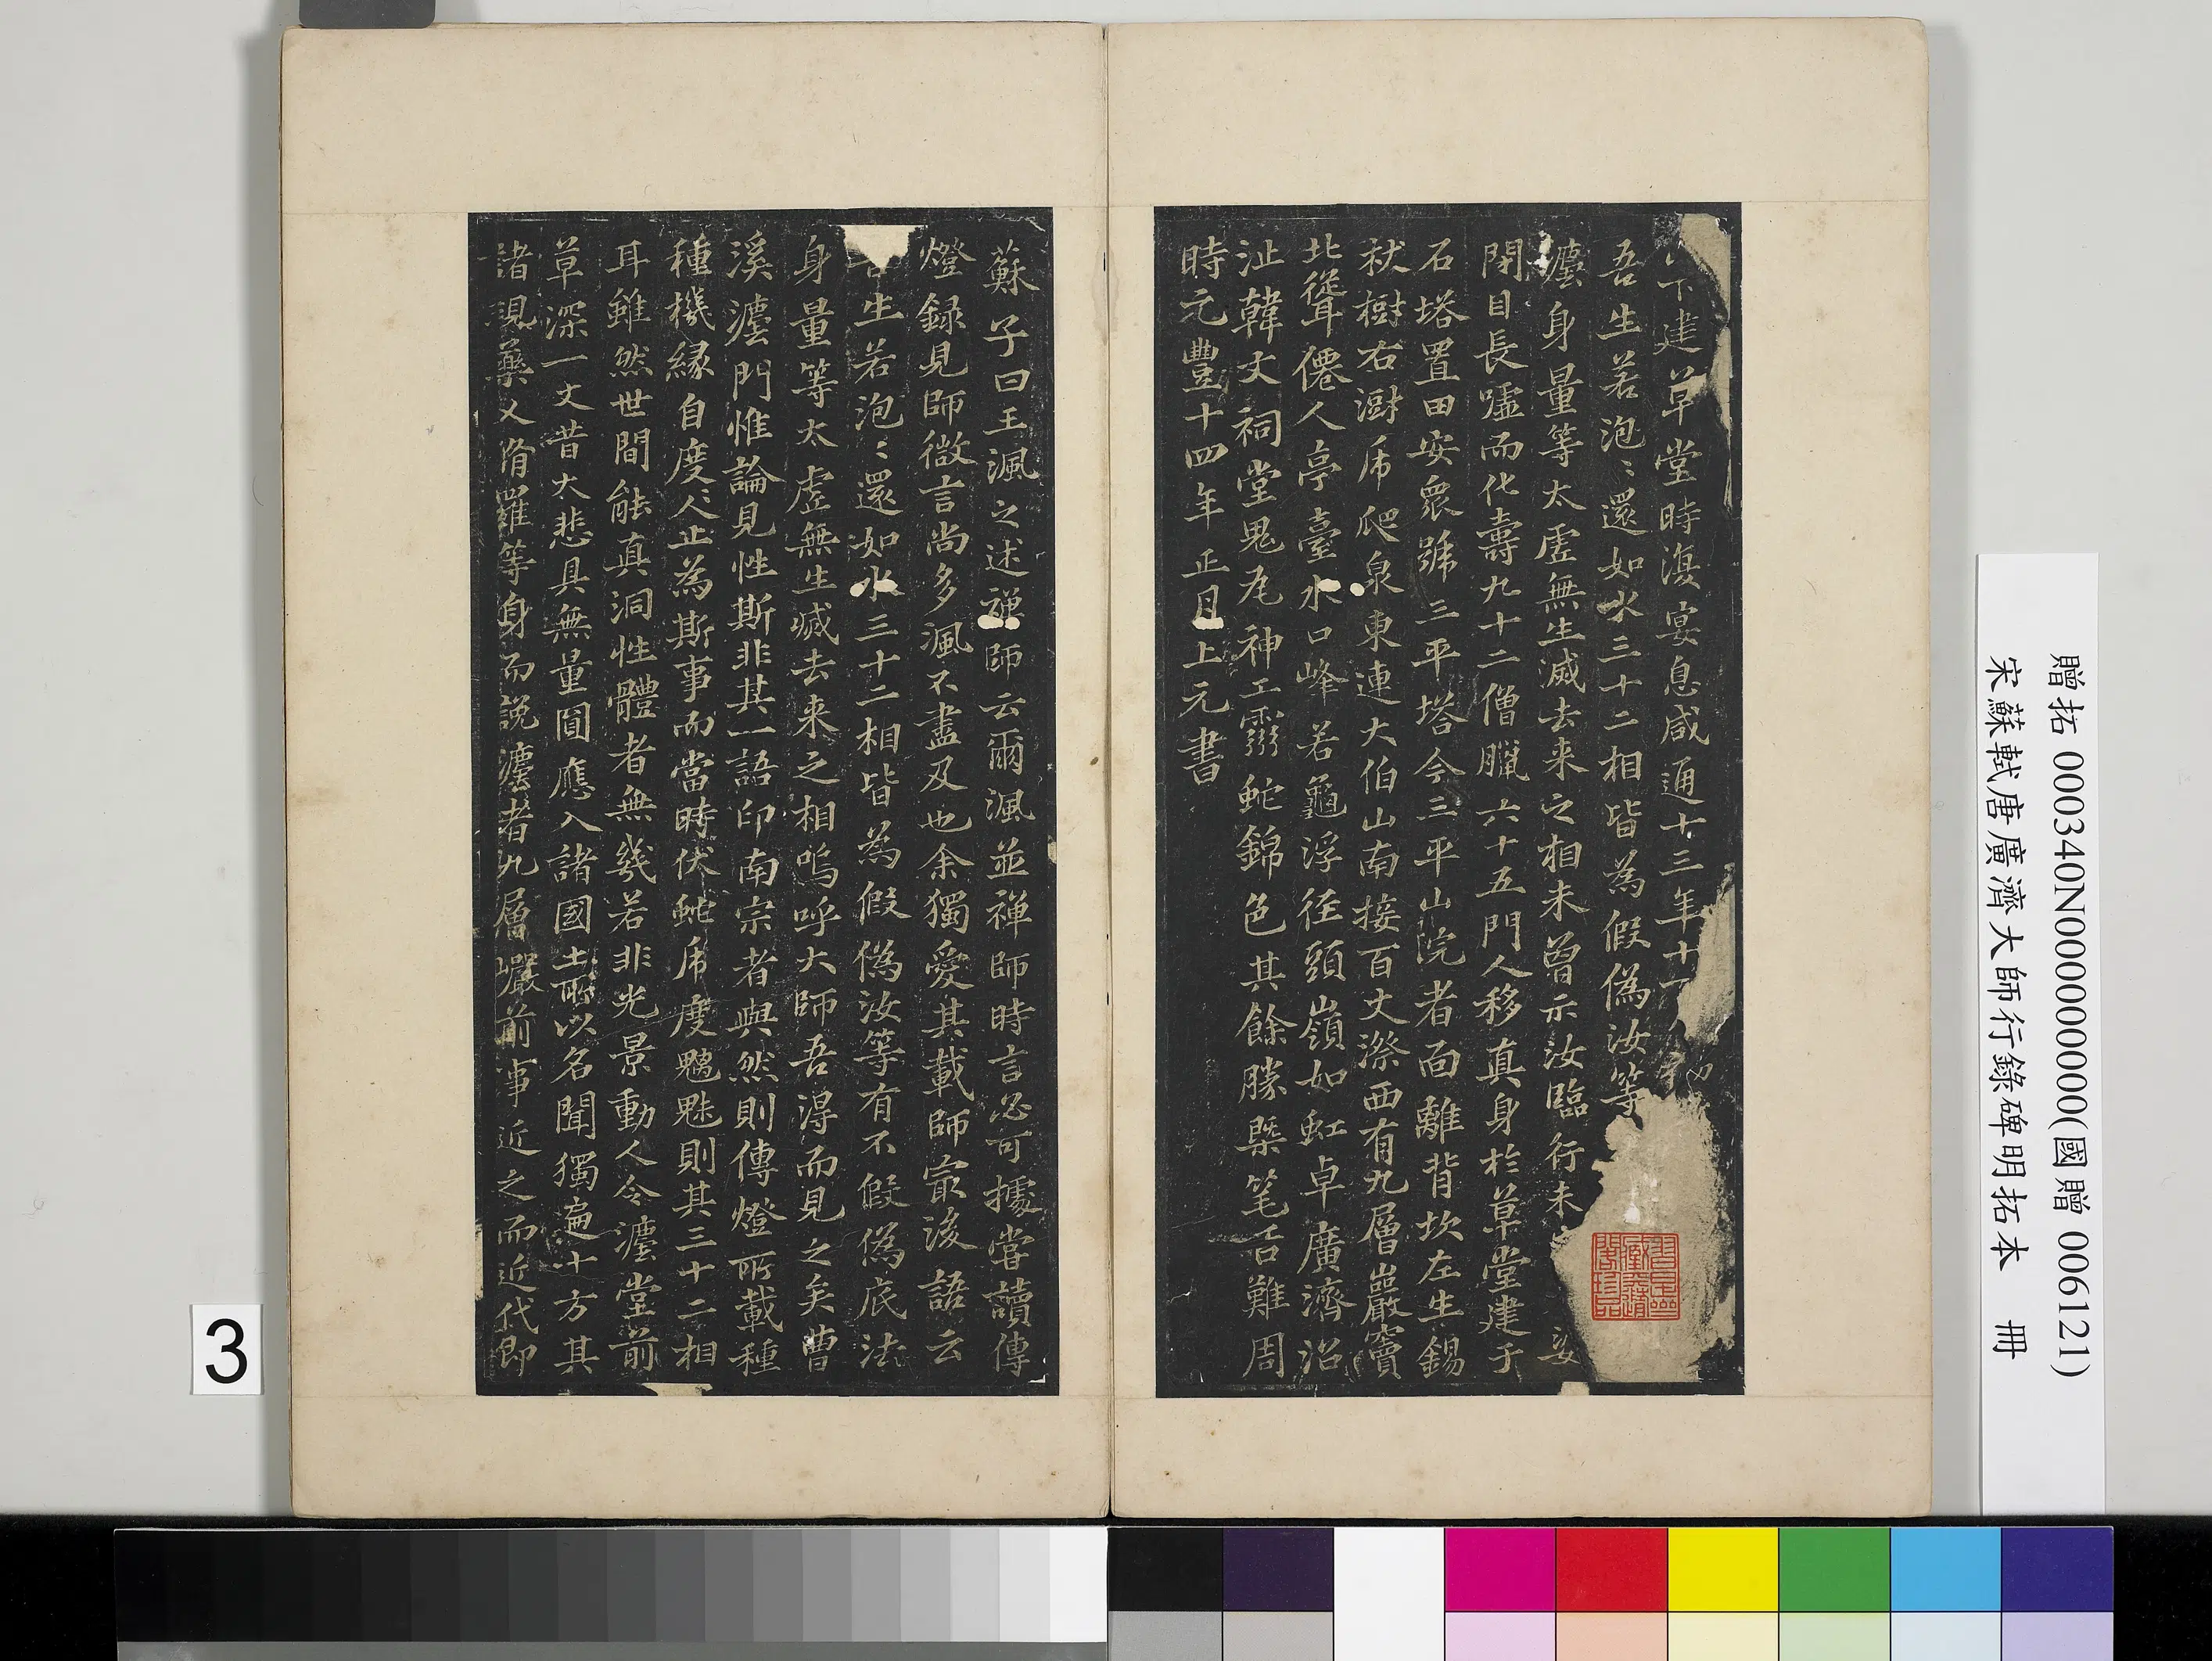 下建草堂時復宴息咸通十三年十一
吾生若泡〻還如水三十二相皆為假偽汝等
灋身量等太虛無生滅去来之相未曾示汝臨行未
閉目長噓而化壽九十二僧臘六十五門人移真身於草堂建于
石塔置田安眾號三平塔今三平山院者面離背坎左生錫
杖樹右澍虎爬泉東連大伯山南接百丈漈西有九層巖竇
北聳僊人亭臺水口峰若龜浮徑頭嶺如虹卓廣濟沼
沚韓文祠堂鬼尾神工霛蛇錦色其餘勝槩笔舌難周
時元豐十四年正月上元書
蘇子曰王諷之述禪師云爾諷並禅師時言必可據嘗讀傳
燈録見師微言尚多諷不盡及也余獨愛其載師寂後語云
吾生若泡〻還如水三十二相皆為假偽汝等有不假偽底法
身量等太虛無生滅去来之相嗚呼大師吾得而見之矣曹
溪灋門惟論見性斯非其一語印南宗者與然則傳燈所載種
種機緣自度度人止為斯事而當時伏蛇虎度魑魅則其三十二相
耳雖然世間能真洞性體者無幾若非光景動人令灋堂前
草深一丈昔大悲具無量圓應入諸國土所以名聞獨遍十方其
諸現藥叉脩羅等身而說灋者九層巖前事近之而近代即
3
贈拓 000340N000000000(國贈 006121)
宋蘇軾唐廣濟大師行錄碑明拓本 冊